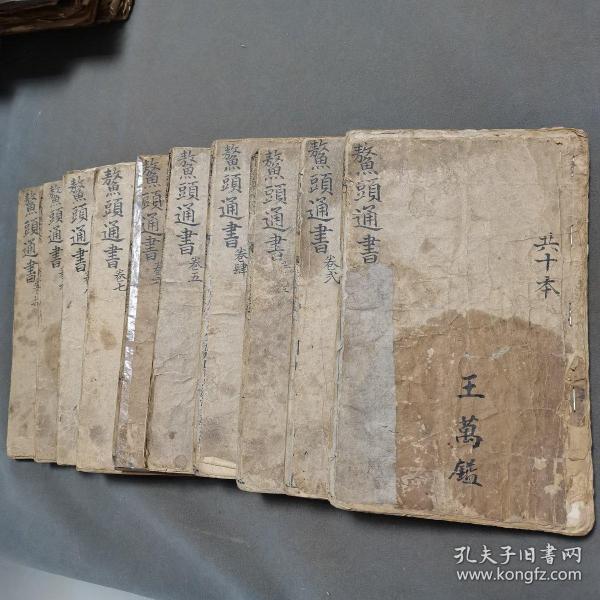 鰲頭通書
共十本
王萬鎰
鰲頭通書
卷弍
鰲頭通書
鰲頭通書
卷肆
鰲頭通書
卷五
鰲頭通書
鰲頭通書
卷七
鰲頭通書
鰲頭通書
鰲頭通書
孔夫子旧书网
www.kongfz.com